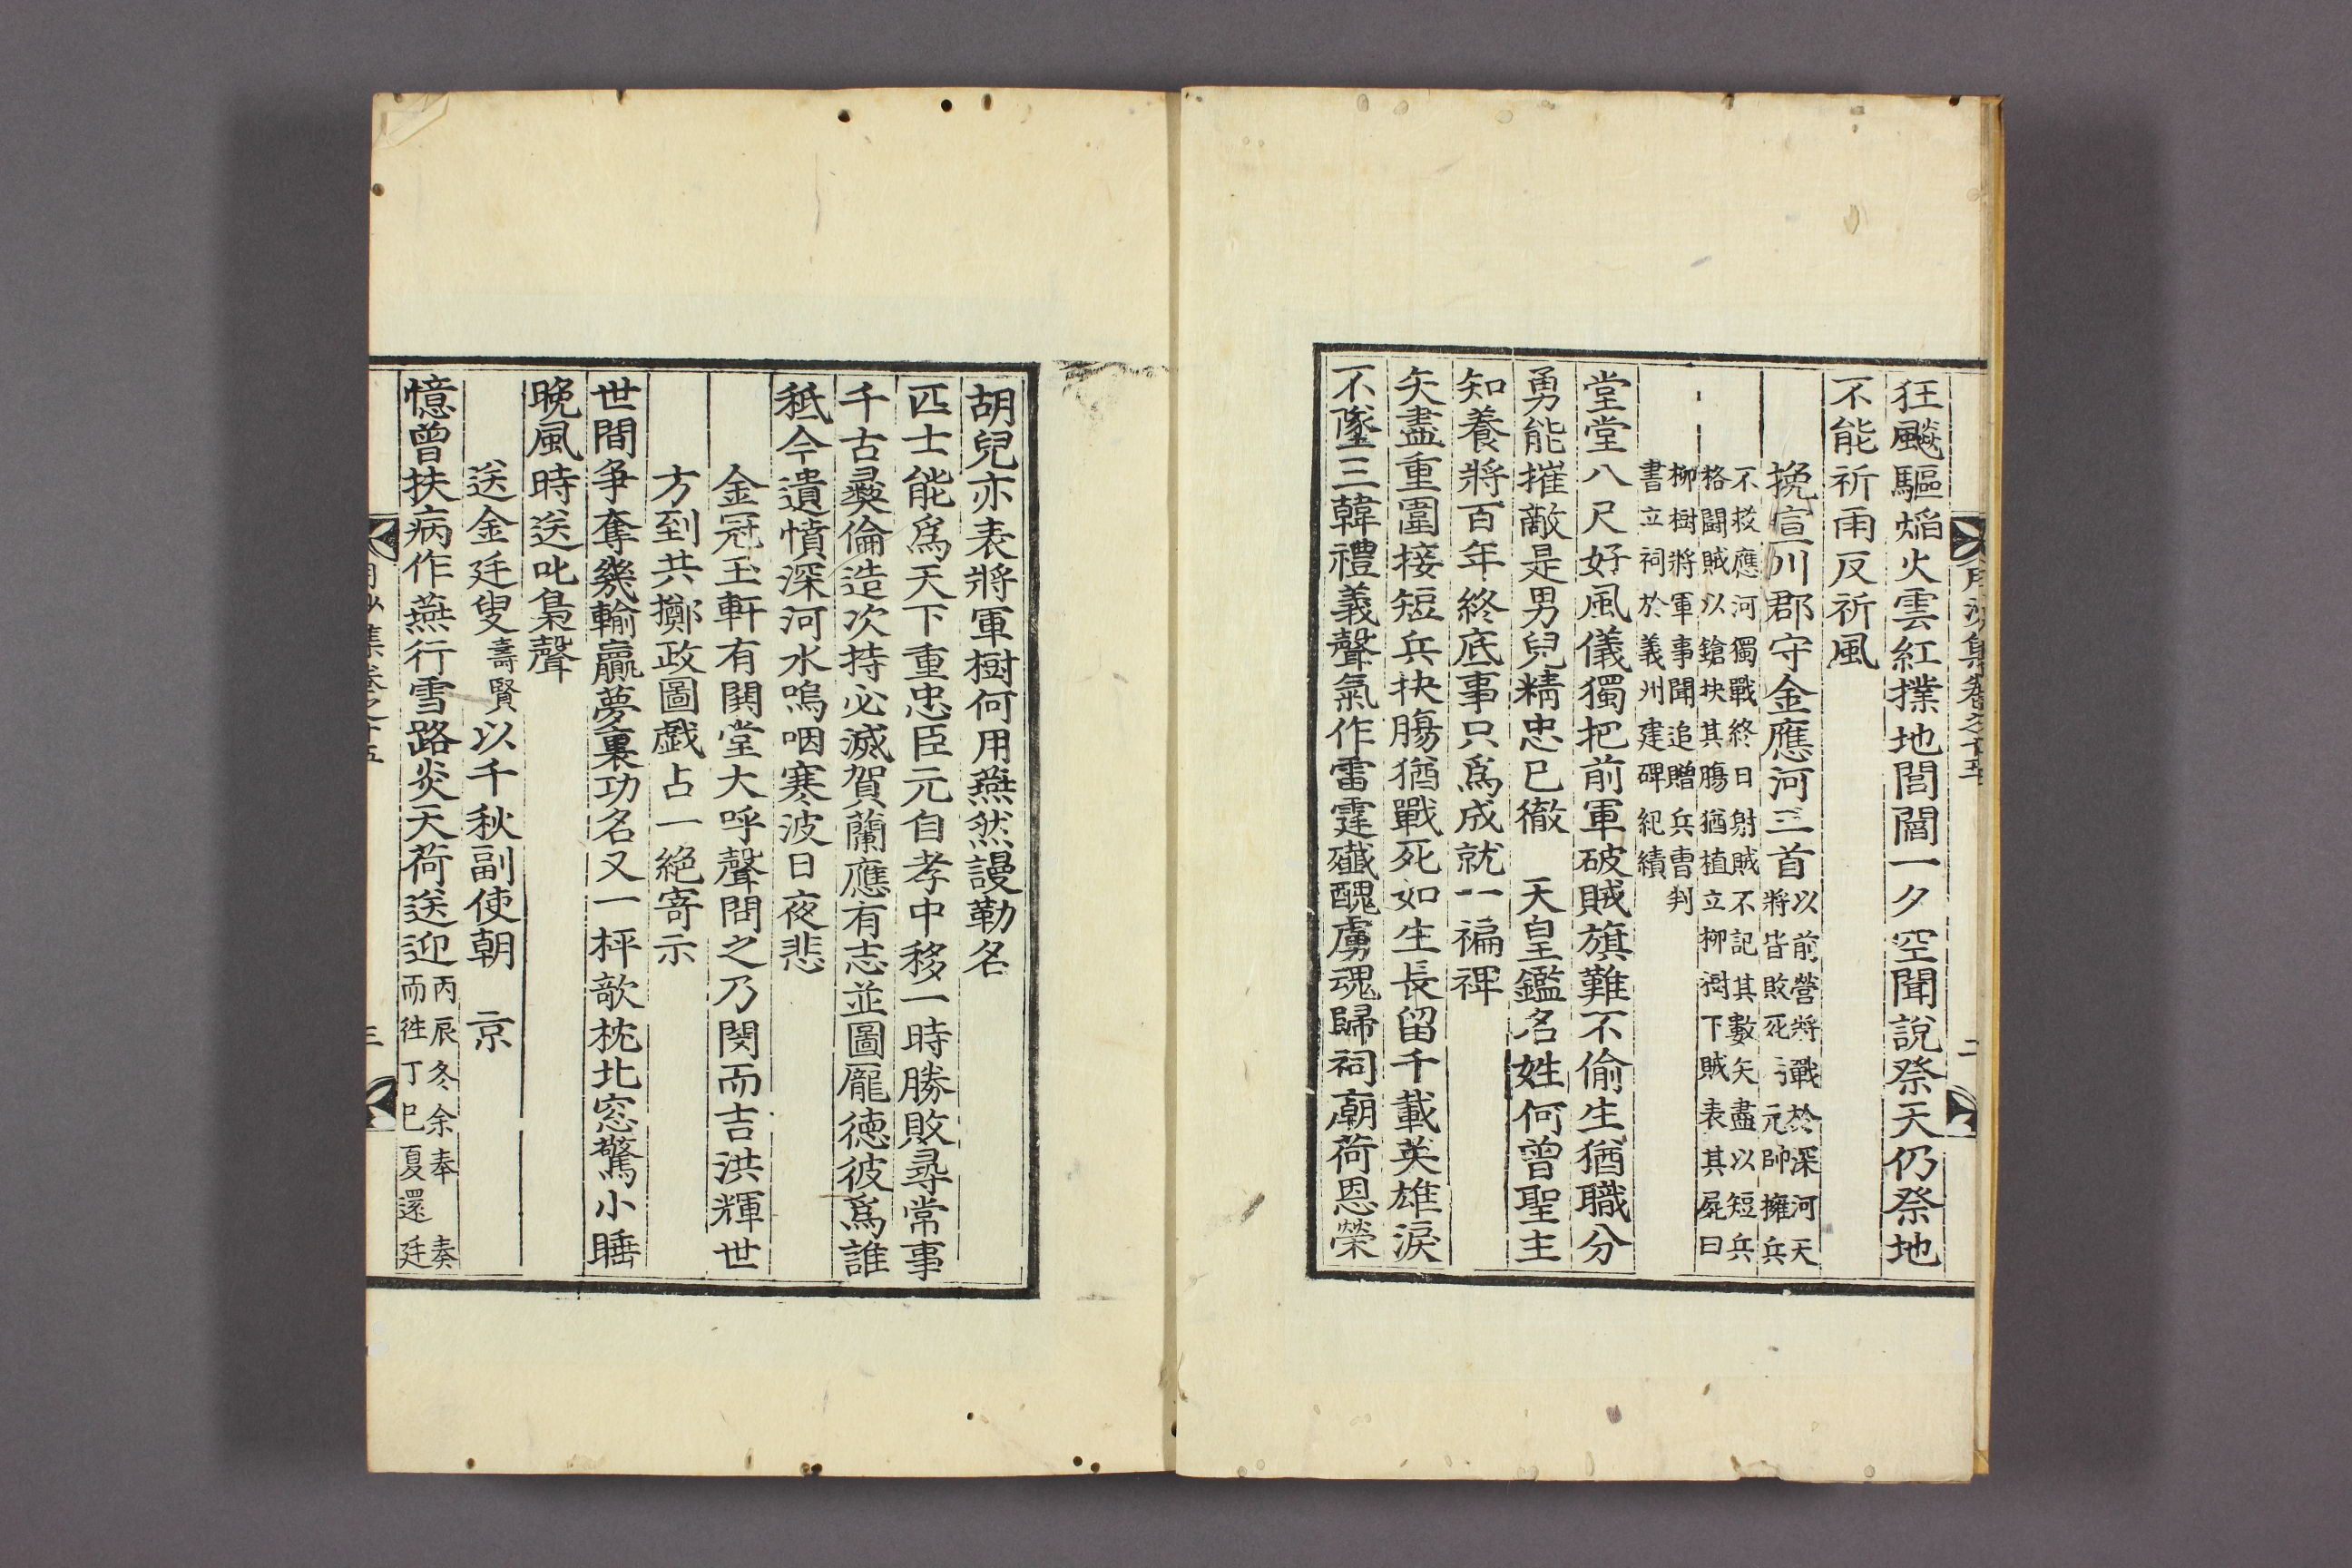 狂飈驅熖火雲紅撲地閭閻一夕空聞說祭天仍祭地
不能祈雨反祈風
挽宣川郡守金應河三首以前營將戰於深河天
將皆敗死弓元帥擁兵
不救應河獨戰終日射賊不記其數矢盡以短兵
格鬪賊以鎗抉其膓猶植立柳樹下賊表其屍曰
柳樹將軍事聞追贈兵曹判
書立祠於義州建碑紀績
堂堂八尺好風儀獨把前軍破賊旗難不偷生猶職分
勇能摧敵是男兒精忠已徹 天皇鑑名姓何曾聖主
知養將百年終底事只爲成就一褊裨
矢盡重圍接短兵抉膓猶戰死如生長留千載英雄淚
不墜三韓禮義聲氣作雷霆殲醜虜魂歸祠廟荷恩榮
胡兒亦表將軍樹何用燕然謾勒名
匹士能爲天下重忠臣元自孝中移一時勝敗尋常事
千古彛倫造次持必滅賀蘭應有志並圖龐德彼爲誰
秪今遺憤深河水嗚咽寒波日夜悲
金冠玉軒有関堂大呼聲問之乃関而吉洪輝世
方到共擲政圖戱占一絕寄示
世間爭奪幾輸贏夢裏功名又一枰欹枕北窓驚小睡
晚風時送叱梟聲
送金廷叟壽賢以千秋副使朝 京
憶曾扶病作燕行雪路炎天荷送迎丙辰冬余奉 奏
而徃丁巳夏還廷
集卷之十五
三